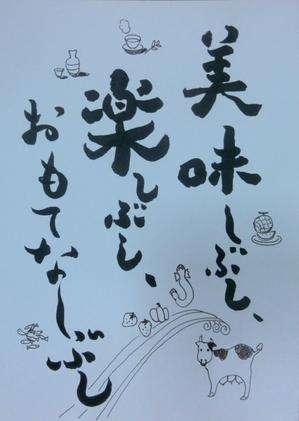 美味しぶし、
楽しぶし、
おもてなしぶし